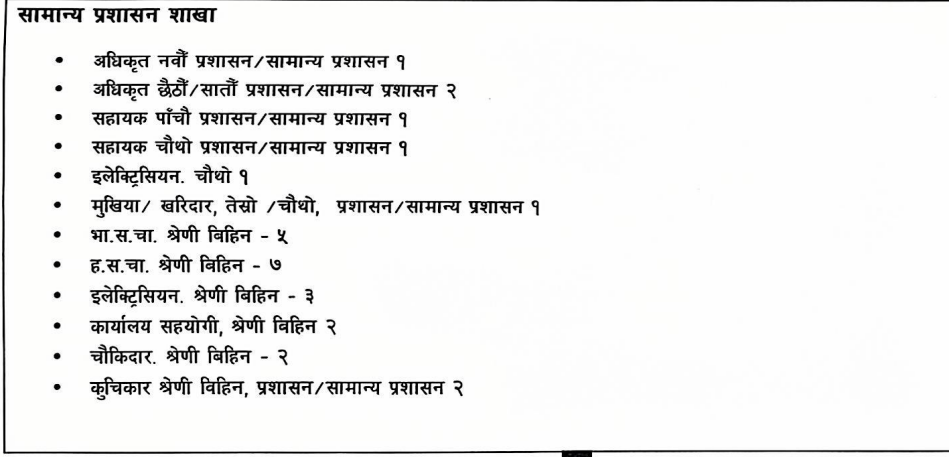 सामान्य प्रशासन शाखा
• अधिकृत नवौं प्रशासन/सामान्य प्रशासन १
• अधिकृत छैठौं/सातौं प्रशासन/सामान्य प्रशासन २
• सहायक पाँचौ प्रशासन/सामान्य प्रशासन १
• सहायक चौथो प्रशासन/सामान्य प्रशासन १
• इलेक्ट्रिसियन. चौथो १
• मुखिया/ खरिदार, तेस्रो /चौथो, प्रशासन/सामान्य प्रशासन १
• भा.स.चा. श्रेणी बिहिन - ५
• ह.स.चा. श्रेणी बिहिन - ७
• इलेक्ट्रिसियन. श्रेणी बिहिन - ३
• कार्यालय सहयोगी, श्रेणी बिहिन २
• चौकिदार. श्रेणी बिहिन - २
• कुचिकार श्रेणी विहिन, प्रशासन/सामान्य प्रशासन २